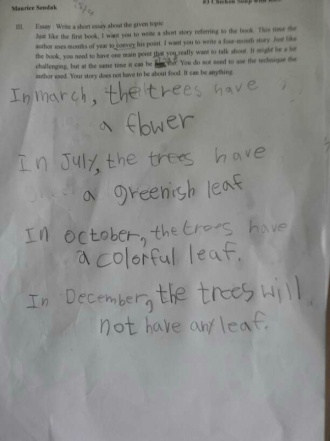 Maurice Sendak
03 Chicken Soup with
III. Essay : Write a short essay about the given topic
Just like the first book, I want you to write a short story referring to the book. This time the
author uses months of year to convey his point. I want you to write a four-month story. Just like
the book, you need to have one main point that you really want to talk about. It might be a bit
challenging, but at the same time it can be fun. You do not need to use the technique the
author used. Your story does not have to be about food. It can be anything.
In march, the trees have
a flower
In July, the trees have
a greenish leaf
In october, the trees have
a colorful leaf.
In December, the trees will
not have any leaf.